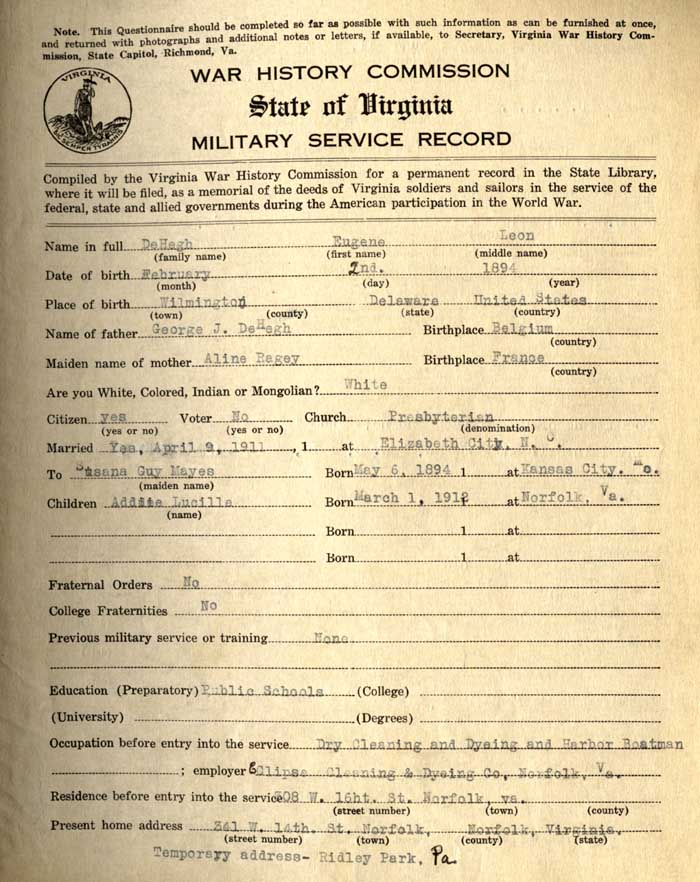 Note. This Questionnaire should be completed so far as possible with such information as can be furnished at once,
and returned with photographs and additional notes or letters, if available, to Secretary, Virginia War History Com-
mission, State Capitol, Richmond, Va.
VIRGINIA
SIC SEMPER TYRANNIS
WAR HISTORY COMMISSION
State of Virginia
MILITARY SERVICE RECORD
Compiled by the Virginia War History Commission for a permanent record in the State Library,
where it will be filed, as a memorial of the deeds of Virginia soldiers and sailors in the service of the
federal, state and allied governments during the American participation in the World War.
Name in full DeHegh Eugene Leon
(family name) (first name) (middle name)
Date of birth February 2nd. 1894
(month) (day) (year)
Place of birth Wilmington Delaware United States
(town) (county) (state) (country)
Name of father George J. DeHegh Birthplace Belgium
(country)
Maiden name of mother Aline Ragey Birthplace France
(country)
Are you White, Colored, Indian or Mongolian? White
Citizen yes Voter No Church Presbyterian
(yes or no) (yes or no) (denomination)
Married Yes, April 9, 1911, 1 at Elizabeth City, N. C.
To Susana Guy Mayes Born May 6, 1894 1 at Kansas City. Mo.
(maiden name)
Children Addie Lucille Born March 1, 1912 at Norfolk, Va.
(name)
Born 1 at
Born 1 at
Fraternal Orders No
College Fraternities No
Previous military service or training None
Education (Preparatory) Public Schools (College)
(University) (Degrees)
Occupation before entry into the service Dry Cleaning and Dyeing and Harbor Boatman
; employer Eclipse Cleaning & Dyeing Co, Norfolk, Va.
Residence before entry into the service 308 W. 16ht. St. Norfolk, va.
(street number) (town) (county)
Present home address 341 W. 14th. St. Norfolk, Norfolk, Virginia.
(street number) (town) (county) (state)
Temporary address- Ridley Park, Pa.